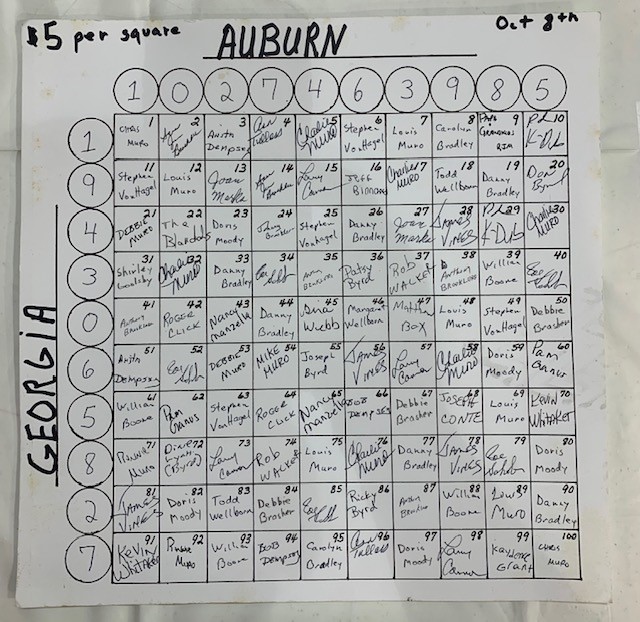 $5 per square
Oct 8th
AUBURN
1 0 2 7 4 6 3 9 8 5
GEORGIA
1
1 Chris Muro
2
3 Austin Dempsey
4
5 Charlie Muro
6 Stephen VonHagel
7 Louis Muro
8 Carolyn Bradley
9
10 K-Dub
9
11 Stephen VonHagel
12 Louis Muro
13
14
15
16 Jeff
17 Charlie Muro
18 Todd Wellborn
19 Danny Bradley
20 Don Byrd
4
21 DEBBIE MURO
22 The
23 Doris Moody
24
25 Stephen VonHagel
26 Danny Bradley
27
28 JAMES VINES
29 K-Dub
30 Charlie Muro
3
31 Shirley
32 Charlie Muro
33 Danny Bradley
34
35
36 Patsy Byrd
37 Rob WALKER
38 Anthony
39 William Boone
40
0
41 Anthony
42 ROGER CLICK
43 Nancy Manzella
44 Danny Bradley
45 Gina Webb
46 Margaret Wellborn
47 Box
48 Louis Muro
49 Stephen VonHagel
50 Debbie Brasher
6
51 Austin Dempsey
52
53 DEBBIE MURO
54 MIKE MURO
55 Joseph Byrd
56 JAMES VINES
57
58 Charlie Muro
59 Doris Moody
60 Pam
5
61 William Boone
62 Pam
63 Stephen VonHagel
64 ROGER CLICK
65 Nancy Manzella
66 BOB DEMPSEY
67 Debbie Brasher
68 JOSEPH CONTE
69 Louis Muro
70 KEVIN Whitaker
8
71 Muro
72 Lynn (Byrd)
73
74 Rob WALKER
75 Louis Muro
76 Charlie Muro
77 Danny Bradley
78 JAMES VINES
79
80 Doris Moody
2
81 JAMES VINES
82 Doris Moody
83 Todd Wellborn
84 Debbie Brasher
85
86 Ricky Byrd
87
88 William Boone
89 Louis Muro
90 Danny Bradley
7
91 KEVIN Whitaker
92 Muro
93 William Boone
94 BOB DEMPSEY
95 Carolyn Bradley
96
97 Doris Moody
98
99 Kaylene Grant
100 CHRIS MURO